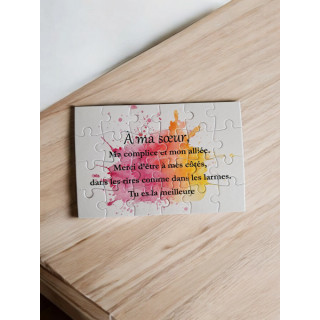 A ma sœur,
Ma complice et mon alliée.
Merci d'être à mes côtés,
dans les rires comme dans les larmes.
Tu es la meilleure